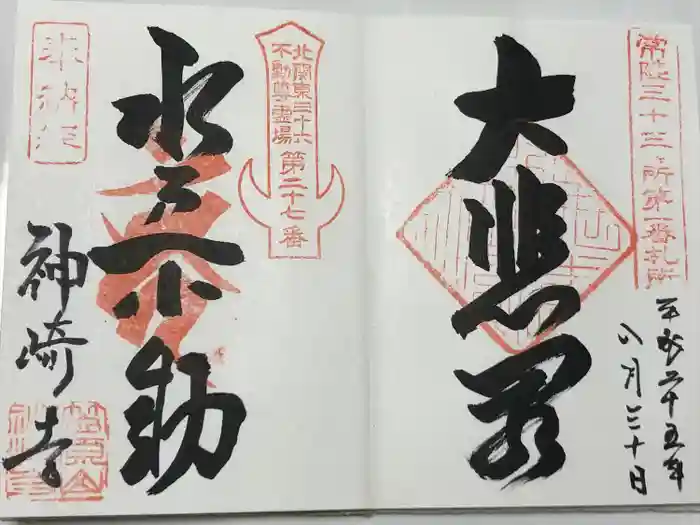 常陸三十三ヶ所第一番札所
平成二十五年
八月三十日
大悲閣
北関東三十六
不動尊霊場
第二十七番
水不動
奉納経
神崎寺